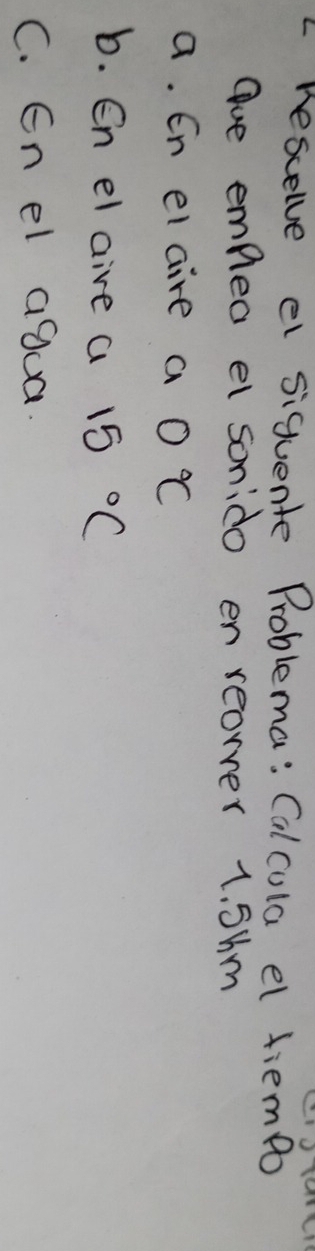 2 Resuelve el siguente Problema: Calcula el tiempo
que emplea el sonido en recorrer 1.5km
a. En el aire a 0 °C
b. En el aire a 15 °C
C. En el agua.